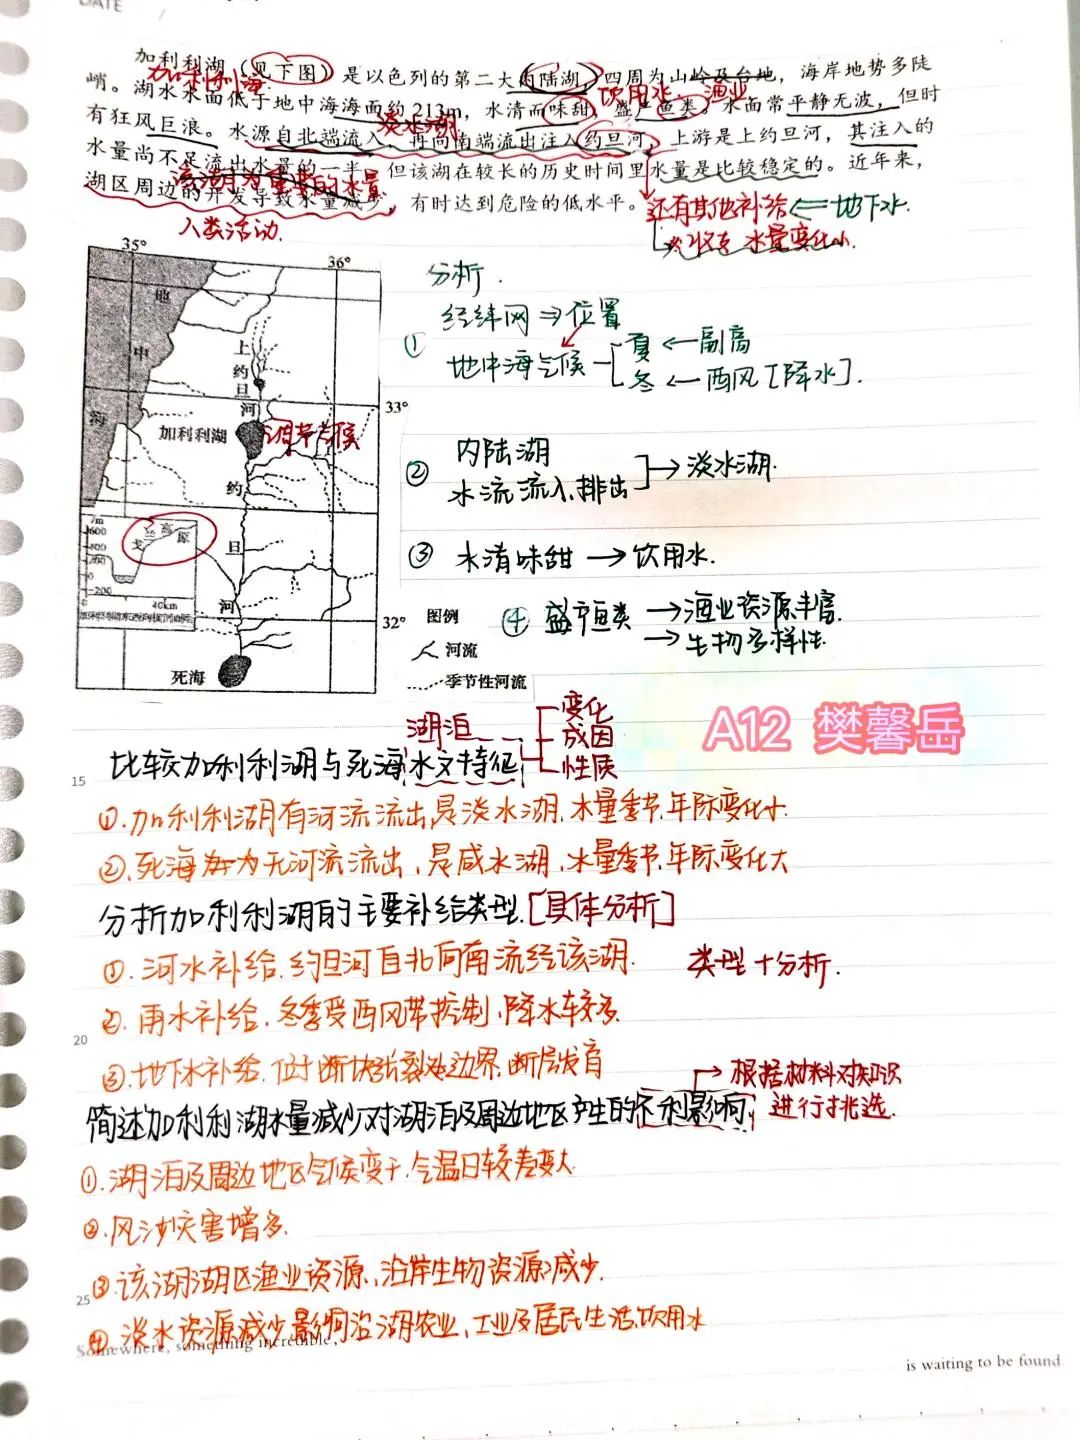 DATE
加利利湖（见下图）是以色列的第二大内陆湖，四周为山岭及台地，海岸地势多陡
加利利海
饮用水 渔业
峭。湖水水面低于地中海海面约213m，水清而味甜，盛产鱼类。水面常平静无波，但时
淡水湖
有狂风巨浪。水源自北端流入，再向南端流出注入约旦河，上游是上约旦河，其注入的
水量尚不足流出水量的一半，但该湖在较长的历史时间里水量是比较稳定的。近年来，
该湖为重要的水量
湖区周边的开发导致水量减少，有时达到危险的低水平。
还有其他补给⇐地下水
人类活动
水量变化小
35°
36°
分析.
地
经纬网⇒位置
中
上约旦河
① 地中海气候
夏←副高
冬←西风[降水].
海
33°
加利利湖
调节气候
② 内陆湖
水流流入、排出
→淡水湖.
约
/m
600
400
200
0
-200
戈兰高原
旦
③ 水清味甜→饮用水.
40km
河
32°
图例
④ 盛产鱼类→渔业资源丰富.
→生物多样性
河流
死海
季节性河流
湖泊
变化
成因
性质
A12 樊馨岳
比较加利利湖与死海水文特征
15
①.加利利湖有河流流出,是淡水湖,水量季节,年际变化小.
②.死海为无河流流出,是咸水湖,水量季节,年际变化大
分析加利利湖的主要补给类型.[具体分析]
①.河水补给.约旦河自北向南流经该湖.
类型+分析.
②.雨水补给.冬季受西风带控制,降水较多.
20
③.地下水补给.位于断块张裂处边界,断层发育
→根据材料对知识
进行挑选.
简述加利利湖水量减少对湖泊及周边地区产生的不利影响
①.湖泊及周边地区气候变干.气温日较差变大
②.风沙灾害增多.
③.该湖湖区渔业资源、沿岸生物资源减少.
25
④.淡水资源减少影响沿湖农业、工业及居民生活饮用水
Somewhere, something incredible,
is waiting to be found